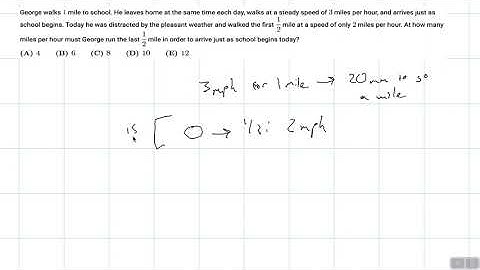 George walks 1 mile to school. He leaves home at the same time each day, walks at a steady speed of 3 miles per hour, and arrives just as
school begins. Today he was distracted by the pleasant weather and walked the first 1/2 mile at a speed of only 2 miles per hour. At how many
miles per hour must George run the last 1/2 mile in order to arrive just as school begins today?
(A) 4 (B) 6 (C) 8 (D) 10 (E) 12
3mph for 1 mile → 20 min to go
a mile
15 [ 0 → 1/2: 2mph